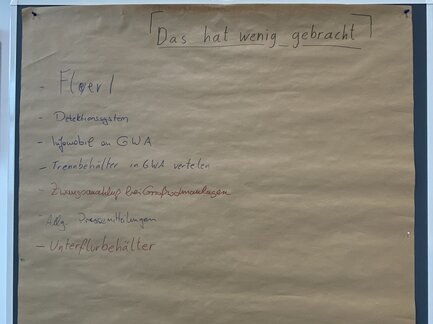 Das hat wenig gebracht
- Flyer
- Detektionssystem
- Infomobil an GWA
- Trennbehälter in GWA verteilen
- bei Großwohnanlagen
- Allg. Pressemitteilungen
- Unterflurbehälter